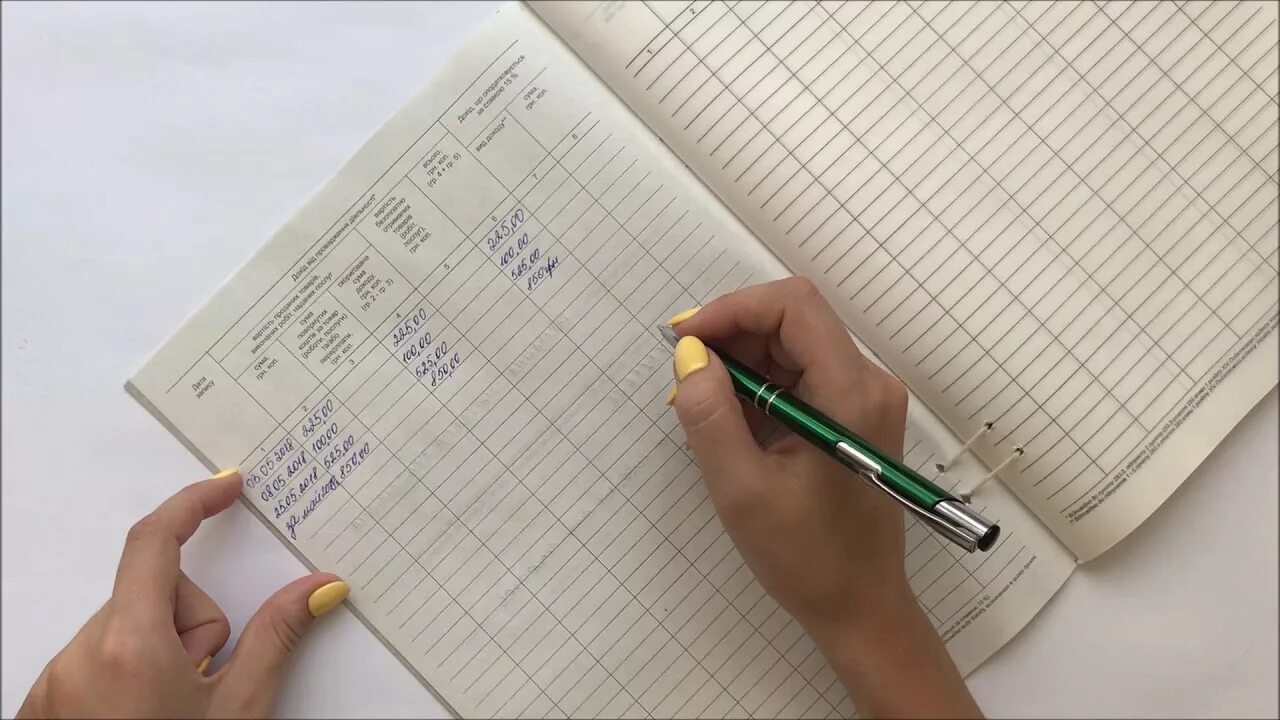 Дохід від провадження діяльності*
Дохід, що оподатковується
за ставкою 15 %
Дата
запису
вартість проданих товарів,
виконаних робіт, наданих послуг
сума,
грн. коп.
сума
повернутих
коштів за товар
(роботи, послуги)
та/або
передплати,
грн. коп.
скоригована
сума
доходу,
грн. коп.
(гр. 2 - гр. 3)
вартість
безоплатно
отриманих
товарів
(робіт,
послуг),
грн. коп.
всього,
грн. коп.
(гр. 4 + гр. 5)
вид доходу**
сума,
грн. коп.
1 2 3 4 5 6 7 8
05.05.2018 225,00 225,00 225,00
08.05.2018 100,00 100,00 100,00
25.05.2018 525,00 525,00 525,00
за місяць 850,00 850,00 850 грн
1 2